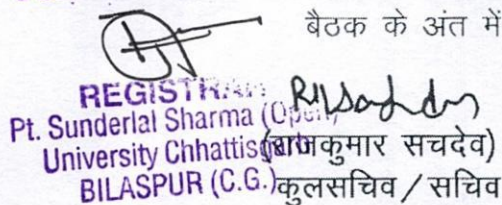 बैठक के अंत में
REGISTRAR
Pt. Sunderlal Sharma (Open)
University Chhattisgarh
BILASPUR (C.G.)
(राजकुमार सचदेव)
कुलसचिव / सचिव